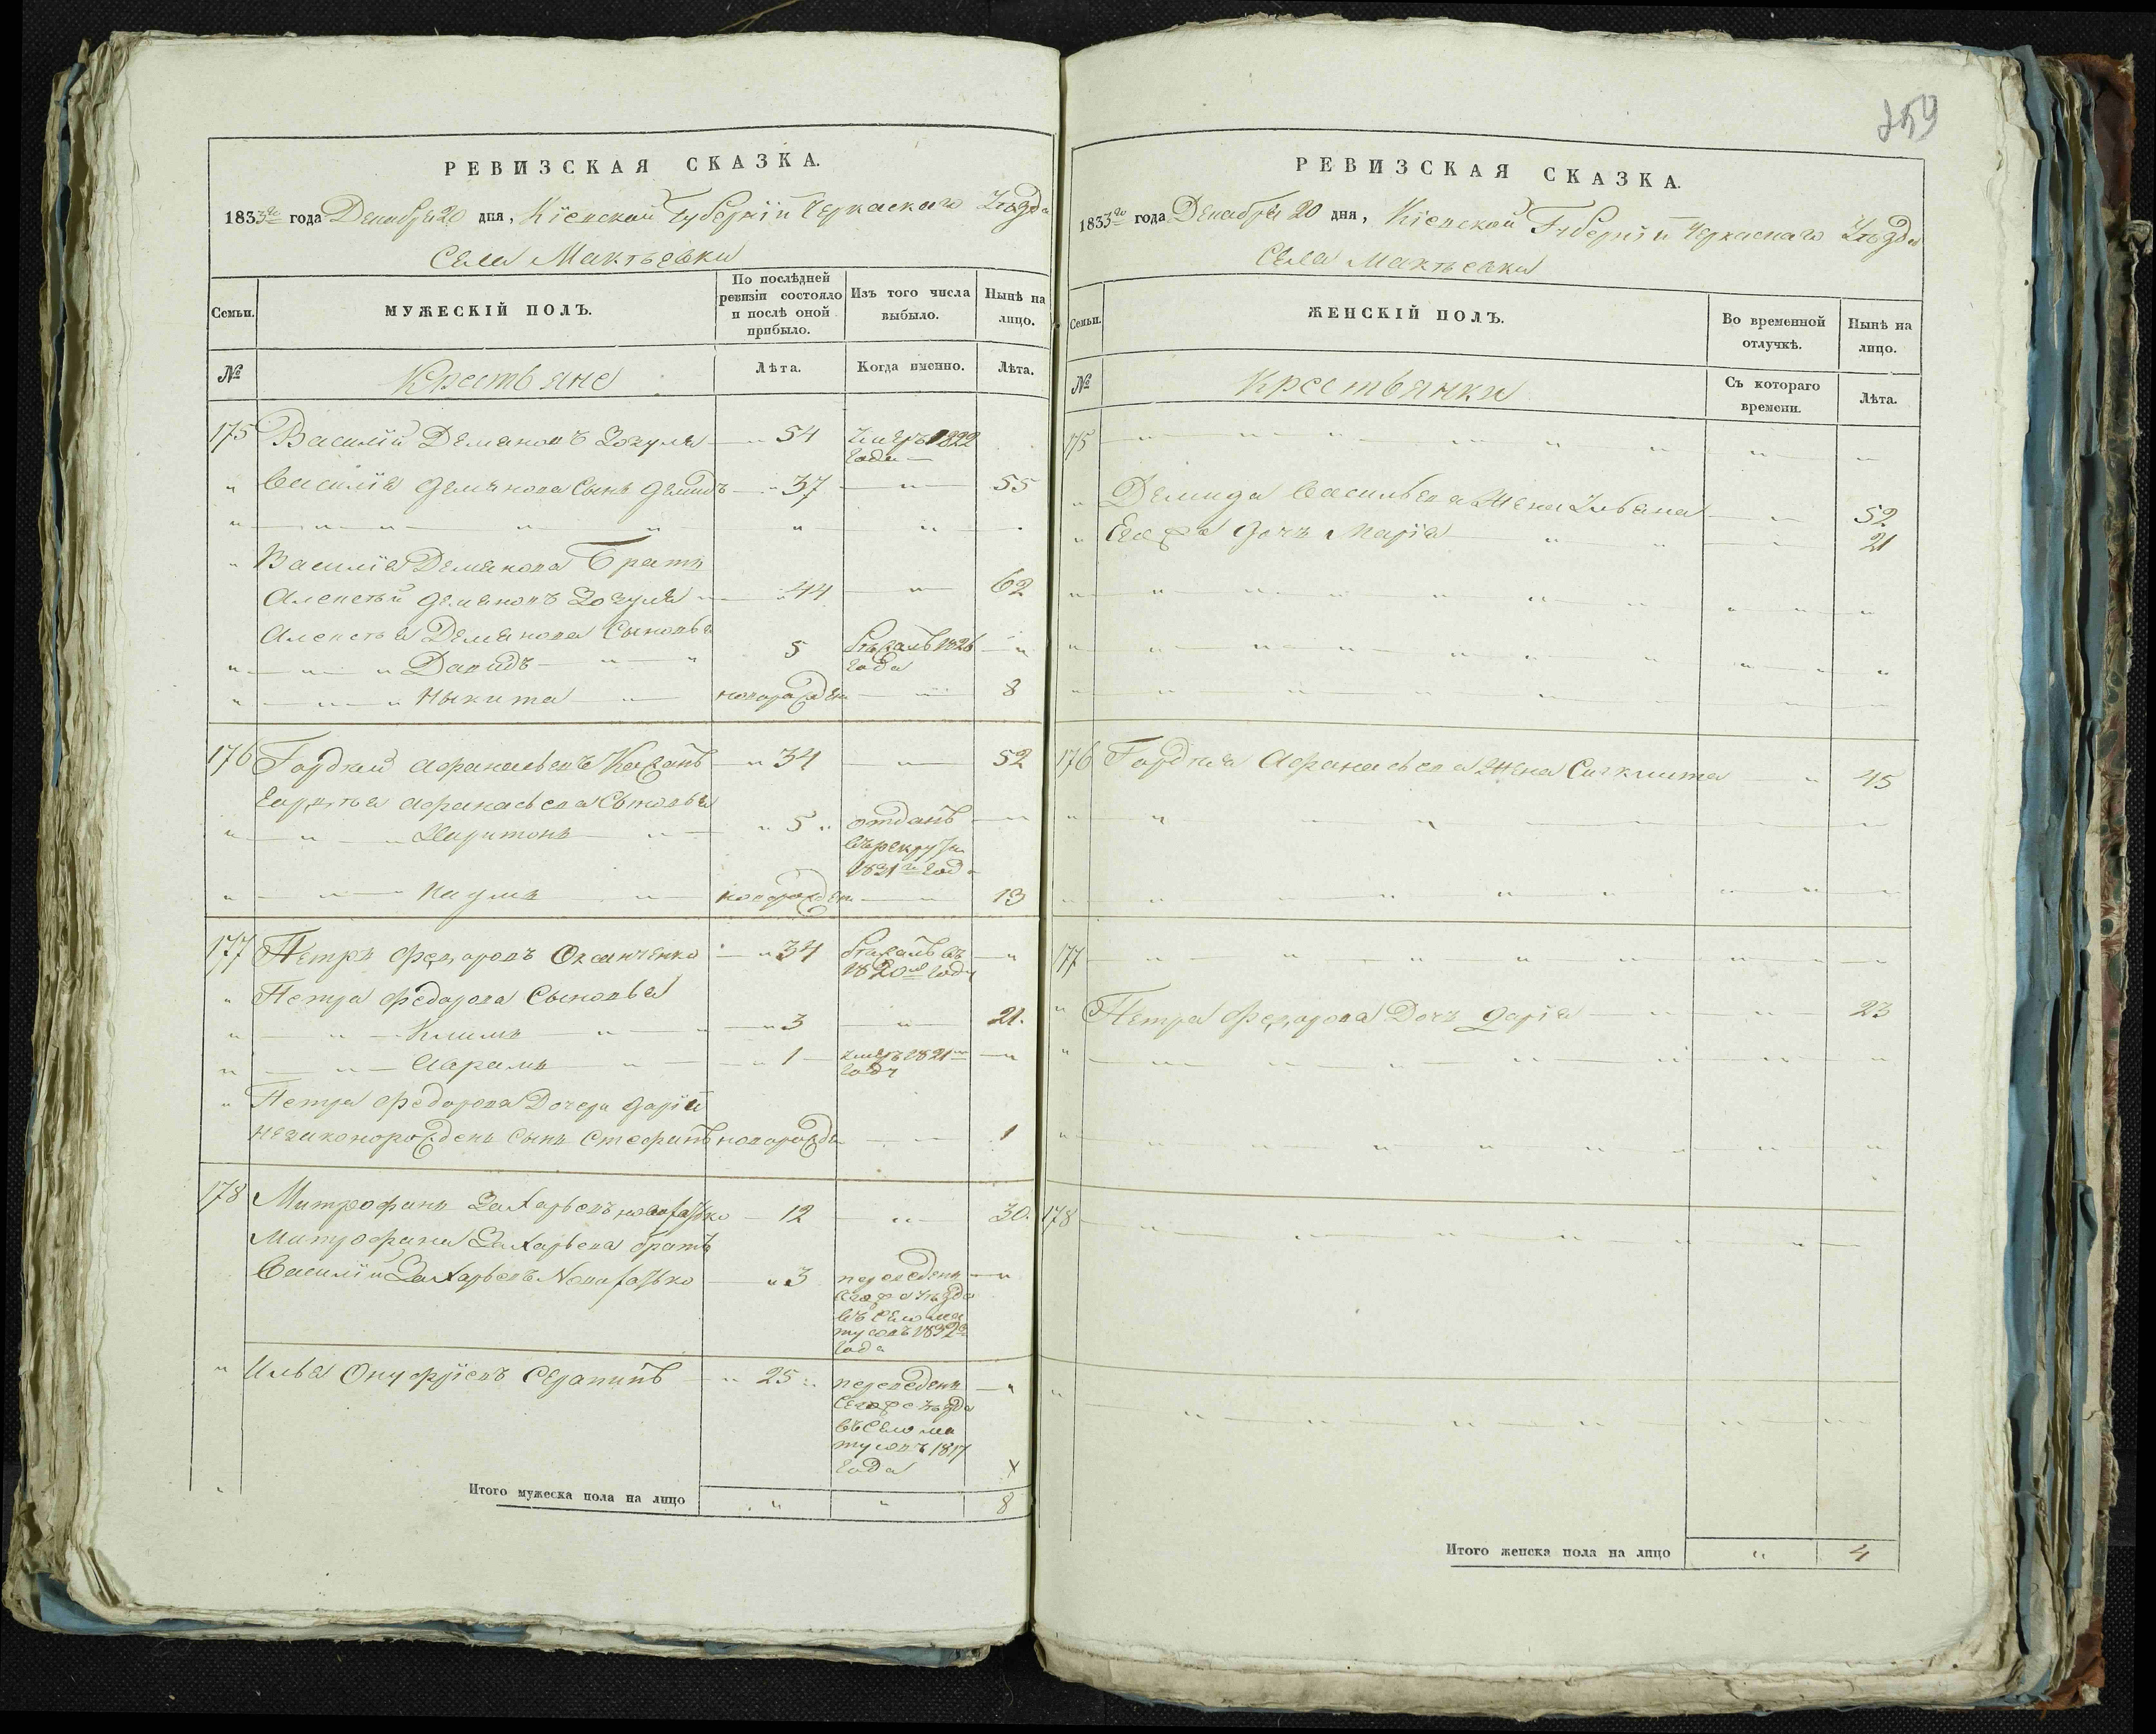 259
РЕВИЗСКАЯ СКАЗКА.
1833го года Декабря 20 дня, Кіевской Губерніи Черкаскаго Уѣзда
Села Мактѣевки
Семьи.
МУЖЕСКІЙ ПОЛЪ.
По послѣдней ревизіи состояло и послѣ оной прибыло.
Изъ того числа выбыло.
Нынѣ на лицо.
№
Крестьяне
Лѣта.
Когда именно.
Лѣта.
175 Василій Демяновъ Зозуля — " 54 умеръ 1822
года —
" Василія Демянова Сынъ Демидъ — " 37 — " — 55
" Василія Демянова Братъ
Алексѣй Демяновъ Зозуля — " 44 — " — 62
Алексѣя Демянова Сыновья
" — " — " Давидъ — " — " 5 бѣжалъ 1826 — "
года
" — " — " Ныкита — " — новорожден — " — 8
176 Гордѣй Афанасьевъ Казанъ — " 34 — " — 52
Гордѣя Афанасьева Сыновья
" — " — " Харитонъ — " — " 5 " отданъ — "
въ рекруты
1831го года
" — " — Наумъ — " — новорожден — " — 13
177 Петръ Федоровъ — " 34 бѣжалъ въ — "
1820мъ году
" Петра Федорова Сыновья
" — " — Климъ — " — " — " 3 — " — 21.
" — " — Абрамъ — " — " 1 — умеръ 1821го — "
году
" Петра Федорова Дочери Даріи
незаконорожденъ Сынъ Стефанъ новорожде — " — 1
178 Митрофанъ Захарьевъ — 12 — " — 30.
Митрофана Захарьева братъ
Василій Захарьевъ — " 3 переведенъ — "
сего жъ уѣзда
въ Село Ма
тусовъ 1832го
года
" Илья Онуфріевъ — " 25 " переведенъ — "
Сего жъ уѣзда
въ Село Ма
тусовъ 1817
года
х
Итого мужеска пола на лицо " " 8
РЕВИЗСКАЯ СКАЗКА.
1833го года Декабря 20 дня, Кіевской Губерніи Черкаскаго Уѣзда
Села Мактѣевки
Семьи.
ЖЕНСКІЙ ПОЛЪ.
Во временной отлучкѣ.
Нынѣ на лицо.
№
Крестьянки
Съ котораго времени.
Лѣта.
175
" Демида Васильева Жена Ульяна — " — 52
" Его жъ дочь Марія — " — 21
176 Гордѣя Афанасьева Жена — " — 45
177
" Петра Федорова Дочь Дарія — " — 23
178
Итого женска пола на лицо " 4